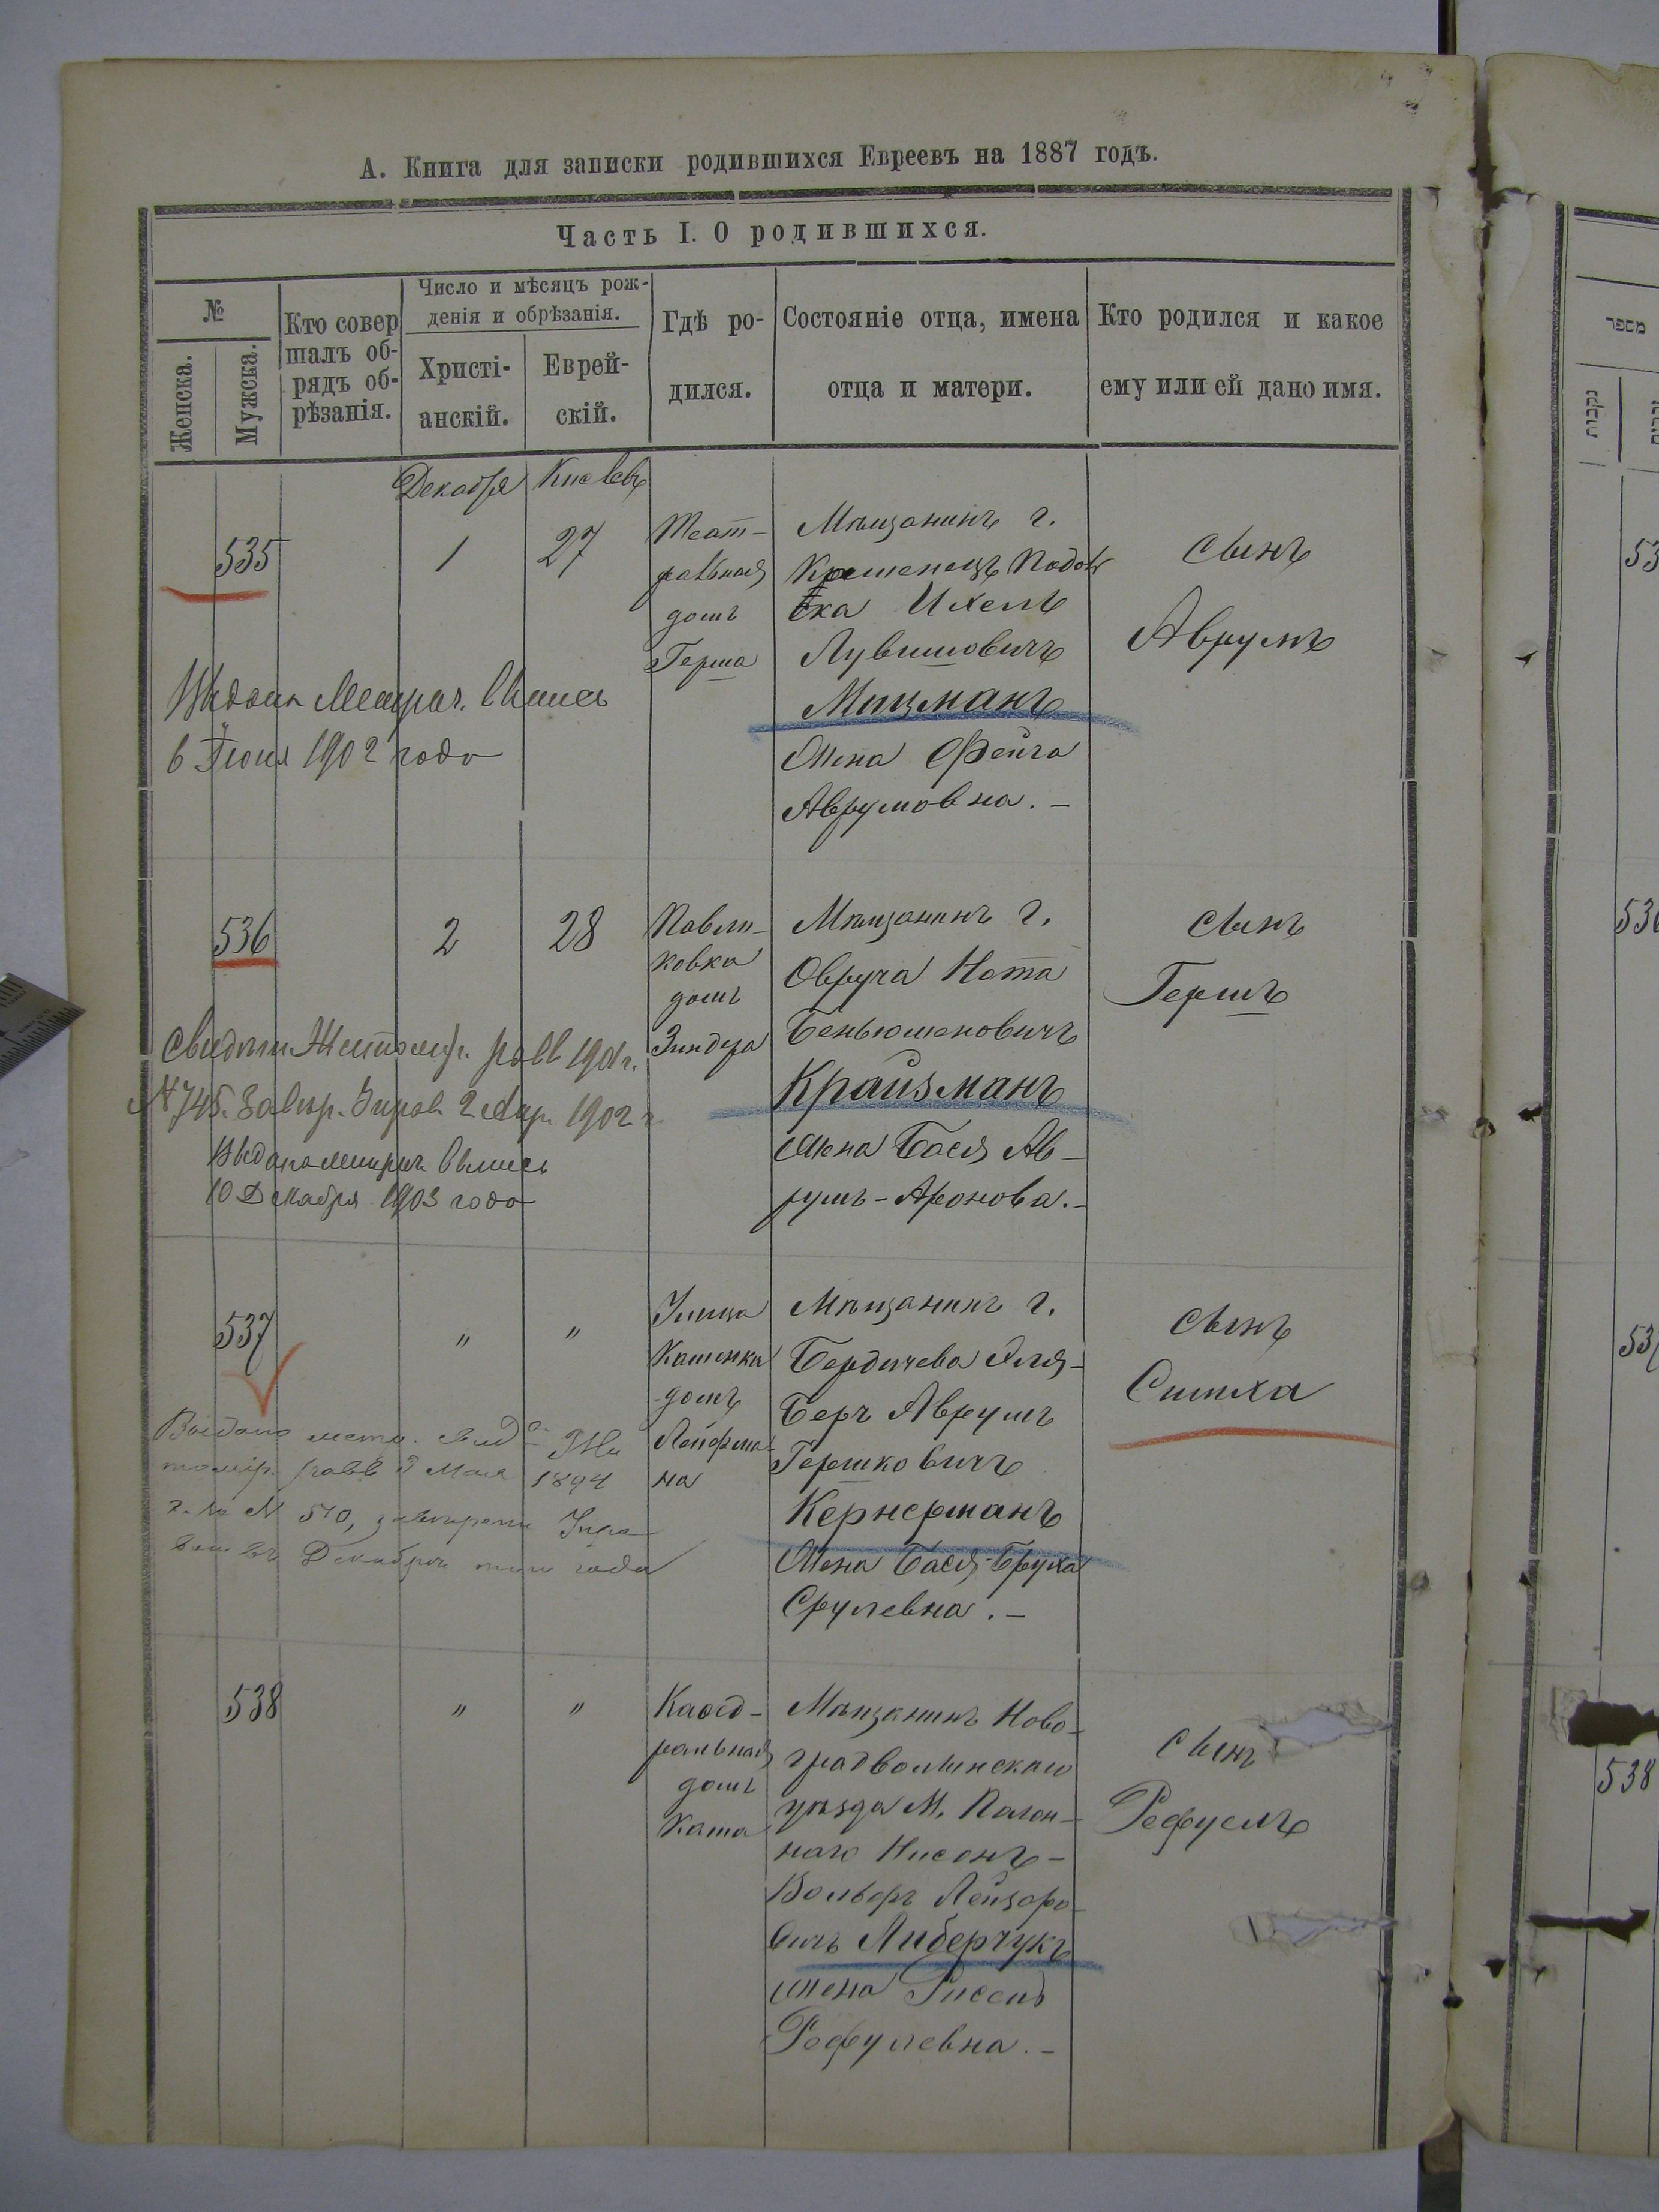 А. Книга для записки родившихся Евреевъ на 1887 годъ.
Часть I. О родившихся.
№
Женска.
Мужска.
Кто совер
шалъ об-
рядъ об-
рѣзанія.
Число и мѣсяцъ рож-
денія и обрѣзанія.
Христі-
анскій.
Еврей-
скій.
Гдѣ ро-
дился.
Состояніе отца, имена
отца и матери.
Кто родился и какое
ему или ей дано имя.
Декабря
Кислевъ
535
1
27
Теат-
ральная
домъ
Герша
Мѣщанинъ г.
Кременецъ Подоль
ска Ихель
Лувишовичъ
Мицманъ
Жена Фейга
Аврумовна. –
сынъ
Аврумъ
Выдана Метрич. Выпись
6 Іюня 1902 года
536
2
28
Павли-
ковка
домъ
Зиндера
Мѣщанинъ г.
Овруча Нота
Беньюменовичъ
Крайзманъ
Жена Бася Ав-
румъ-Аронова. –
сынъ
Гершъ
Свидѣт. Житомір. равв 1901 г.
№ 745. Завѣр. Управ. 2 Апр. 1902 г
Выдана метрич. Выпись
10 Декабря 1903 года
537
"
"
Улица
Каменка
домъ
Лейфма-
на
Мѣщанинъ г.
Бердичева Эля-
Беръ Аврумъ
Гершковичъ
Кернерманъ
Жена Бася-Бруха
Срулевна. –
сынъ
Симха
Выдано метр. свид Жи
томір. равв 3 Мая 1894
г. за № 570, завѣрено Упра
вою въ Декабрѣ года
538
"
"
Каѳед-
ральная
домъ
Ката
Мѣщанинъ Ново-
градволынскаго
уѣзда М. Полон-
наго Нисонъ-
Вольфъ Лейзоро-
вичъ Либерчукъ
жена Рисель
Рефулевна. –
сынъ
Рефуелъ
מספר
נקבות
53
536
537
538